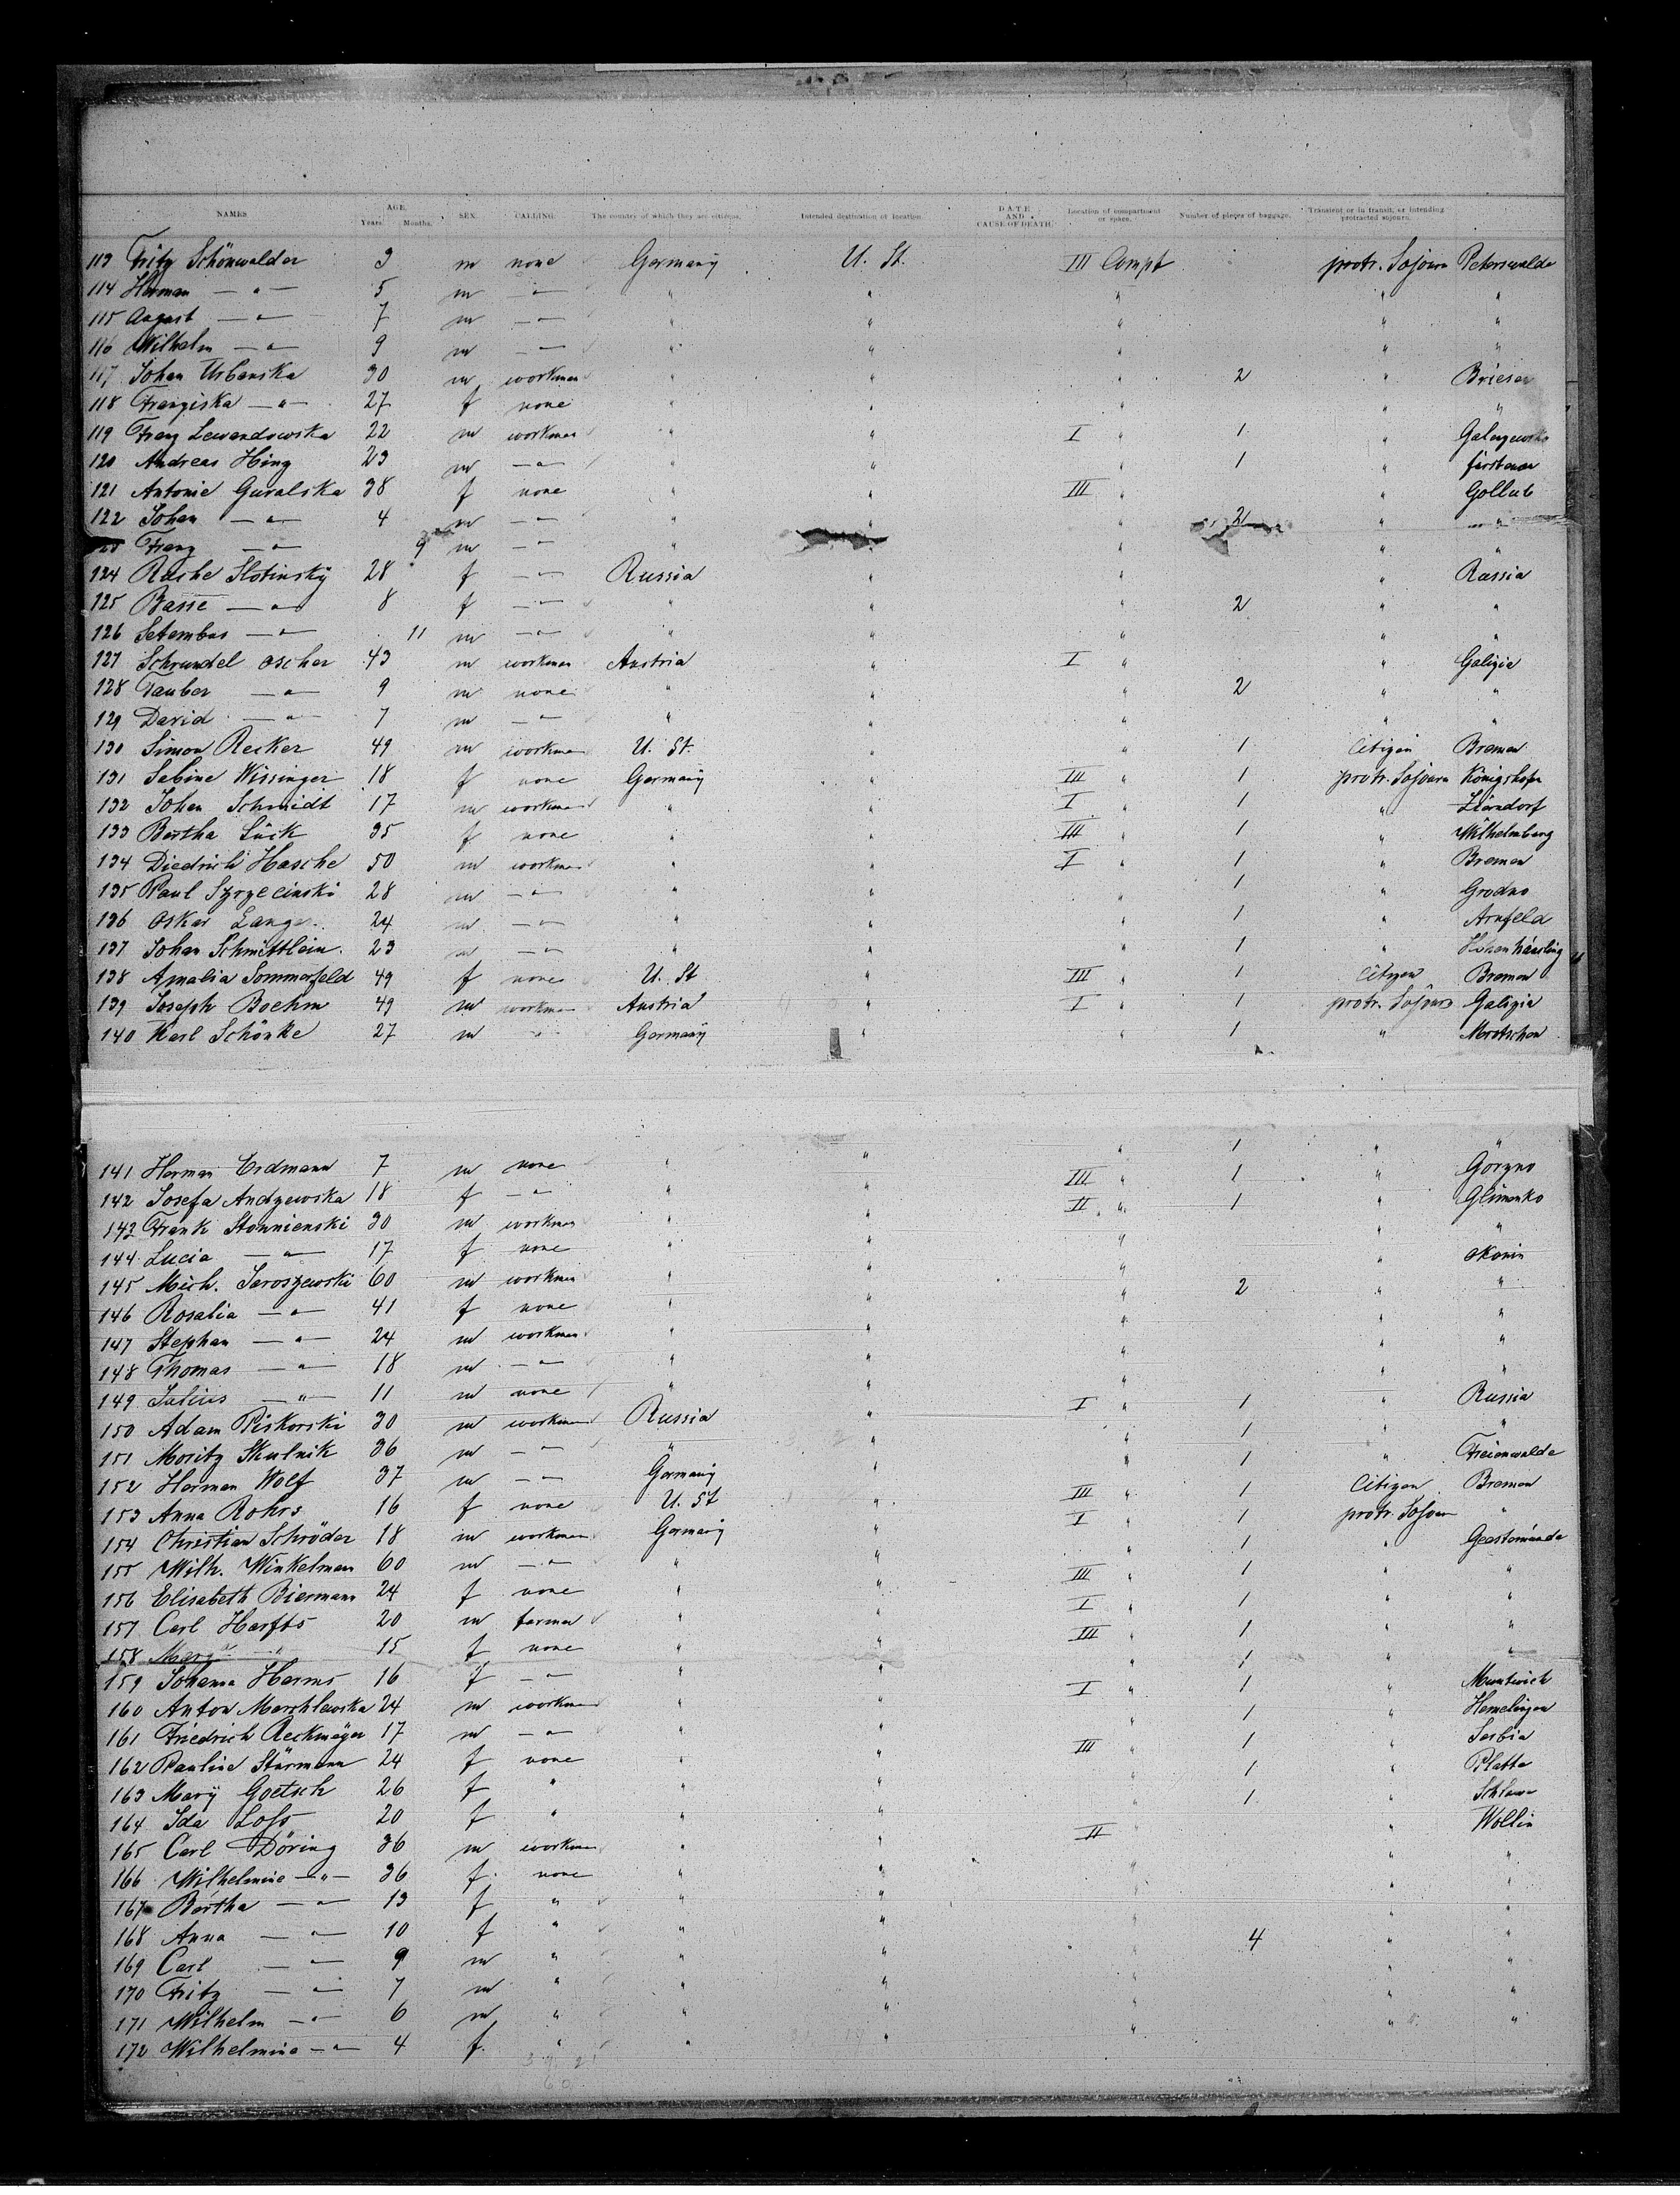 NAMES. AGE. Years. Months. SEX. CALLING. The country of which they are citizens. Intended destination or location. DATE AND CAUSE OF DEATH. Location of compartment or space. Number of pieces of baggage. Transient or in transit, or intending protracted sojourn.
113 Fritz Schönwalder 3 m none Germany U. St. III Compt protr. Sojourn Peterswalde
114 Herman — " — 5 m — " — " " " " "
115 August — " — 7 m — " — " " " " "
116 Wilhelm — " — 9 m — " — " " " " "
117 Johan Urbanska 30 m workman " " " 2 " Briesen
118 Franziska — " — 27 f none " " " " "
119 Franz Lewandowska 22 m workman " " I " 1 "
120 Andreas Hinz 23 m — " — " " " 1 "
121 Antonie Guralska 38 f none " " III " " Gollub
122 Johan — " — 4 m — " — " " " 2 " "
Franz — " — 9 m — " — " " " "
124 Rashe Slotinsky 28 f — " — Russia " " " Russia
125 Basse — " — 8 f — " — " " " 2 " "
126 — " — 11 m — " — " " " " "
127 Schrundel Oscher 43 m workman Austria " I " " Galizia
128 Tauber — " — 9 m none " " " 2 " "
129 David — " — 7 m — " — " " " " "
130 Simon Recker 49 m workman U. St. " " 1 Citizen Bremen
131 Sabine Wissinger 18 f none Germany " III " 1 protr. Sojourn Königshofen
132 Johan Schmidt 17 m workman " " I " 1 "
133 Bertha Lück 35 f none " " III " 1 " Wilhelmberg
134 Diedrich Hasche 50 m workman " " I " 1 " Bremen
135 Paul 28 m — " — " " " 1 " Grodno
136 Oskar Lange 24 m — " — " " " 1 " Arnfeld
137 Johan Schmittlein 23 m — " — " " " 1 "
138 Amalia Sommerfeld 49 f none U. St " III " 1 Citizen Bremen
139 Joseph Boehm 49 m workman Austria " I " 1 protr. Sojourn Galizia
140 Karl Schönke 27 m " Germany " " 1 " Mrotschen
141 Herman Erdmann 7 m none " " " 1 " "
142 Josefa Andzewska 18 f — " — " " III " 1 " Gorzno
143 Frank Stonnienski 30 m workman " " II " 1 " Glimenko
144 Lucia — " — 17 f none " " " " "
145 Mich. Jaroszewski 60 m workman " " " " Okonin
146 Rosalia — " — 41 f none " " " 2 " "
147 Stephan — " — 24 m workman " " " " "
148 Thomas — " — 18 m — " — " " " " "
149 Julius — " — 11 m none " " " " "
150 Adam Piskorski 30 m workman Russia " I " 1 " Russia
151 Moritz Skulnik 36 m — " — " " " 1 " "
152 Herman Wolf 37 m — " — Germany " " 1 " Freienwalde
153 Anna Rohrs 16 f none U. St " III " 1 Citizen Bremen
154 Christian Schröder 18 m workman Germany " I " 1 protr. Sojourn "
155 Wilh. Winkelman 60 m — " — " " " 1 " Geestemünde
156 Elisabeth Biermann 24 f none " " III " 1 " "
157 Carl Harfts 20 m farmer " " I " 1 " "
158 Mary " 15 f none " " III " 1 " "
159 Johanna Harms 16 f — " — " " " 1 " "
160 Anton Marchlewska 24 m workman " " I " 1 "
161 Friedrich Reckmeyer 17 m — " — " " " 1 " Hemelingen
162 Pauline Stürmann 24 f none " " III " 1 " Serbia
163 Mary Goetsch 26 f " " " " 1 " Platte
164 Ida Loss 20 f " " " " 1 " Schlawe
165 Carl Döring 36 m workman " " II " " Wollin
166 Wilhelmine — " — 36 f none " " " " "
167 Bertha — " — 13 f " " " " " "
168 Anna — " — 10 f " " " " 4 " "
169 Carl — " — 9 m " " " " " "
170 Fritz — " — 7 m " " " " " "
171 Wilhelm — " — 6 m " " " " " "
172 Wilhelmine — " — 4 f " " " " " "